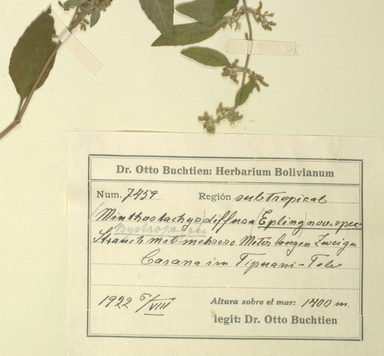 Dr. Otto Buchtien: Herbarium Bolivianum
Num. 7459 Región subtropical
Minthostachys diffusa Epling nov. spec.
Strauch mit mehrere Meter langen Zweigen
Casana im Tipuani-Tale
1922 5/VIII Altura sobre el mar: 1400 m.
legit: Dr. Otto Buchtien